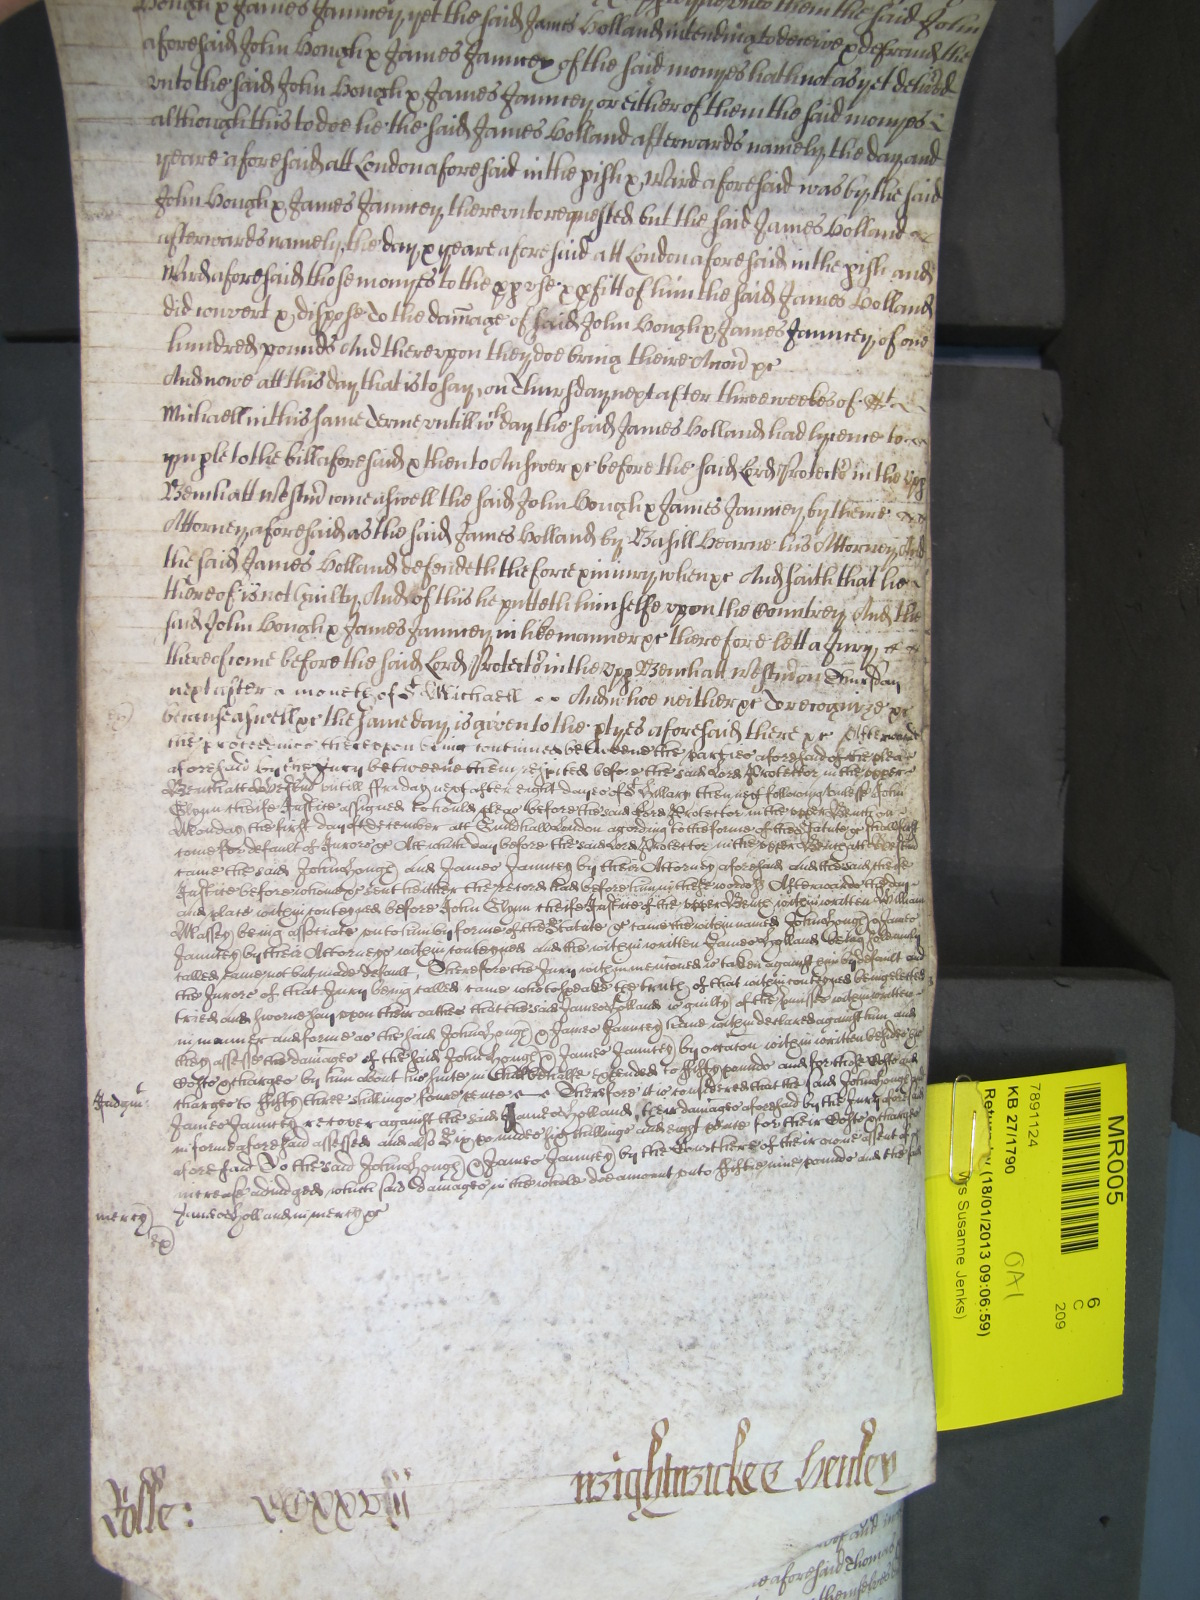 Hough x James Jaunncy, yet the said James Holland intending to deceive x defraud the
aforesaid John Hough x James Jaunncy of the said monyes hath not as yet deliv'ed
vnto the said John Hough x James Jaunncy or either of them the said monyes
although this to doe he the said James Holland afterwards namely the day and
yeare aforesaid att London aforesaid in the p'ish x Ward aforesaid was by the said
John Hough x James Jaunncy therevnto requested but the said James Holland
afterwards namely the day x yeare aforesaid att London aforesaid in the p'ish and
Ward aforesaid those monyes to the p'p' vse x p'fitt of him the said James Holland
did convert x dispose To the damage of said John Hough x James Jaunncy of one
hundred pounds And therevpon they doe bring theire Accon' xc
And nowe att this day that is to say on Thursday next after three weekes of St
Michaell in this same Terme vntill w'ch day the said James Holland had lycence to
ymple to the bill aforesaid x then to Answer xc before the said Lord Protecto'r in the vpp'
Bench att Westm' come aswell the said John Hough x James Jaunncy by theire
Attorney aforesaid as the said James Holland by Basill Hearne his Attorney And
the said James Holland defendeth the force x iniury when xc And saith that he
thereof is not Guilty And of this he putteth himselfe vpon the Countrey And the
said John Hough x James Jaunncy in like manner xc therefore lett a Jury
thereof come before the said Lord Protecto'r in the vpp' Bench att Westm' on Thursday
next after a moneth of St Michaell And who neither xc To recognize xc
because aswell xc the same day is given to the p'tyes aforesaid there xc Afterwards
the processe thereupon being continued betweene the parties aforesaid of the plea
aforesaid by the Jury betweene them respited before the said Lord Protector in the upper
Bench att Westm' vntill ffriday next after eight dayes of St Hillary then next following vnlesse John
Glynn cheife Justice assigned to hould pleas before the said Lord Protector in the upper Bench on
Monday the first day of December att Guildhall London according to the forme of the Statute xc shall first
come for default of Jurors xc Att which day before the said Lord Protector in the upper Bench att Westm'
came the said John Hough and James Jaunncy by their Attorney aforesaid and the said cheife
Justice before whome xc sent hether the record had before him in these words Afterwards the day
and place within conteyned before John Glynn cheife Justice of the upper Bench within written William
Massey being associate vnto him by forme of the Statute xc came the within named John Hough x James
Jaunncy by their Attorney within conteyned and the within written James Holland being solemnly
called came not but made default Therefore the Jury within mencioned is taken against him by default and
the Jurors of that Jury being called came who to speake the truth of that within conteyned being elected
tried and sworne say vpon their oathes that the said James Holland is guilty of the p'misses within written
in manner and forme as the said John Hough x James Jaunncy have within declared against him and
they assesse the damages of the said John Hough x James Jaunncy by occasion within written besides
Costs x charges by him about his suite in that behalfe expended to fifty pounds and for those Costs and
charges to fifty three shillings foure pence Therefore it is considered that the said John Hough and
James Jaunncy recover against the said James Holland their damages aforesaid by the Jury aforesaid
in forme aforesaid assessed and also Six pounds six shillings and eight pence for their Costs x charges
aforesaid To the said John Hough x James Jaunncy by the Court here of their owne assent of
increase adiudged which said damages in the whole doe amount vnto fiftie nine pounds and the said
James Holland in mercy xc
Judgm':
mercy
Rolle:
Wightwicke Henley
MR005
6
C
209
7891124
KB 27/1790
(18/01/2013 09:06:59)
Ms Susanne Jenks)